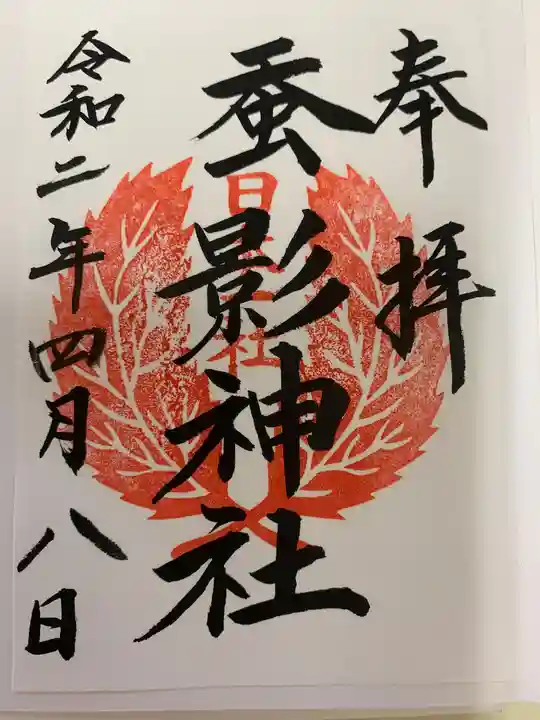 奉拝
蚕影神社
令和二年四月八日